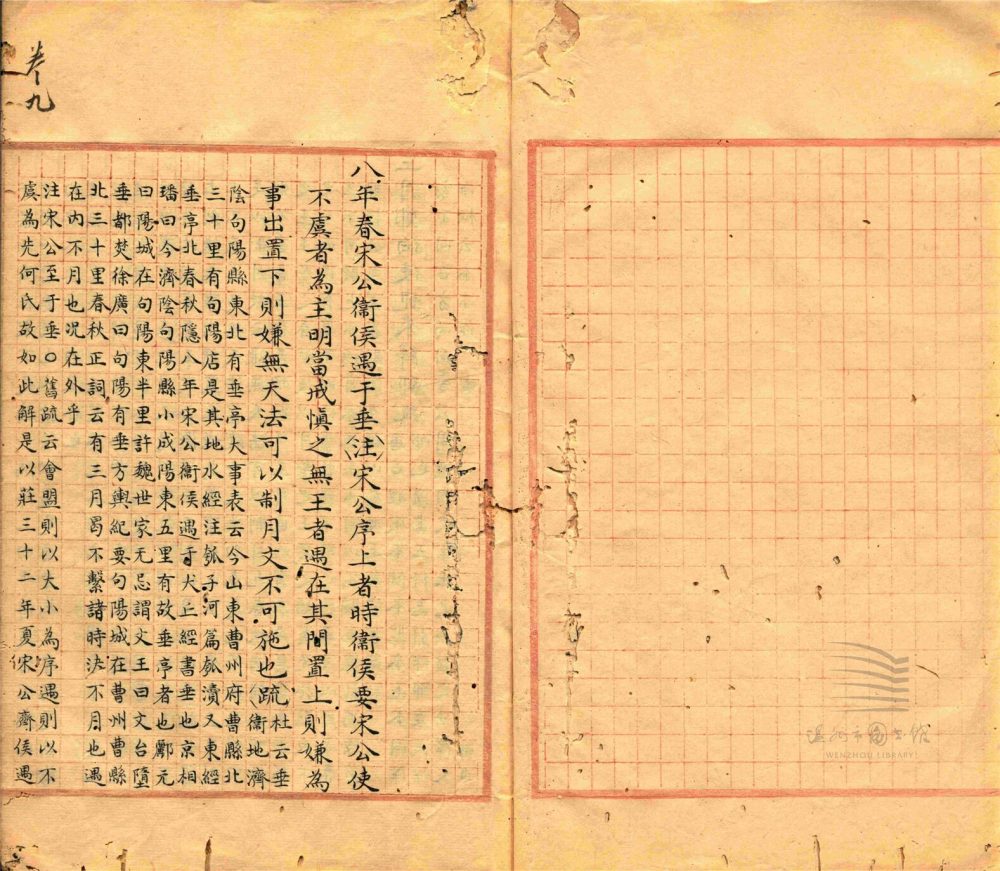 卷九
八年春宋公衞侯遇于垂(注)宋公序上者時衞侯要宋公使
不虞者為主明當戒慎之無王者遇在其間置上則嫌為
事出置下則嫌無天法可以制月文不可施也(疏)
杜云垂
衞地濟
陰句陽縣東北有垂亭大事表云今山東曹州府曹縣北
三十里有句陽店是其地水經注瓠子河篇瓠瀆又東經
垂亭北春秋隱八年宋公衞侯遇于犬丘經書垂也京相
璠曰今濟陰句陽縣小成陽東五里有故垂亭者也酈元
曰陽城在句陽東半里許魏世家无忌謂文王曰文台墮
垂都焚徐廣曰句陽有垂方輿紀要句陽城在曹州曹縣
北三十里春秋正詞云有三月曷不繫諸時決不月也遇
在内不月也况在外乎
注宋公至于垂○舊疏云會盟則以大小為序遇則以不
虞為先何氏故如此解是以莊三十二年夏宋公齊侯遇
温州市图书馆
WENZHOU LIBRARY